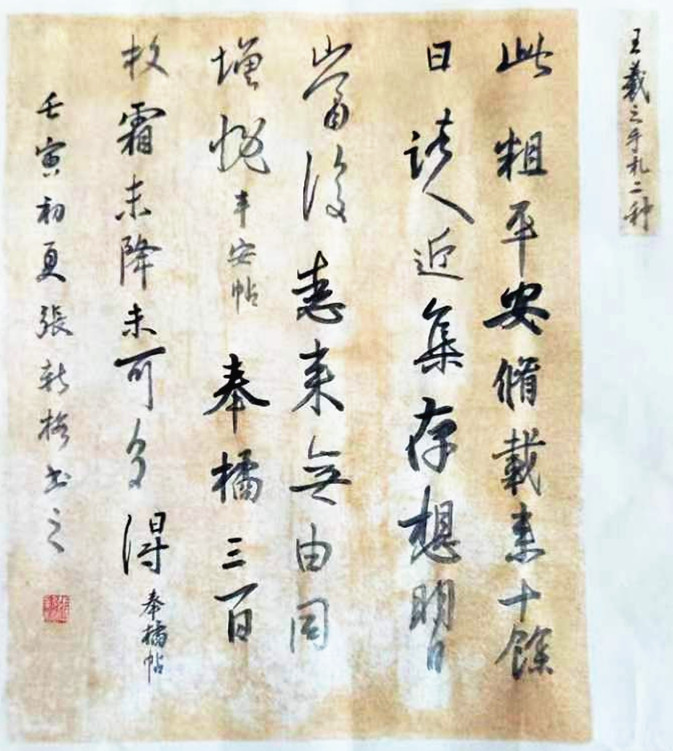 王羲之手札二种
此粗平安脩載来十餘
日諸人近集存想明日
當復悉来無由同
增慨平安帖奉橘三百
枚霜未降未可多得奉橘帖
壬寅初夏張新书之